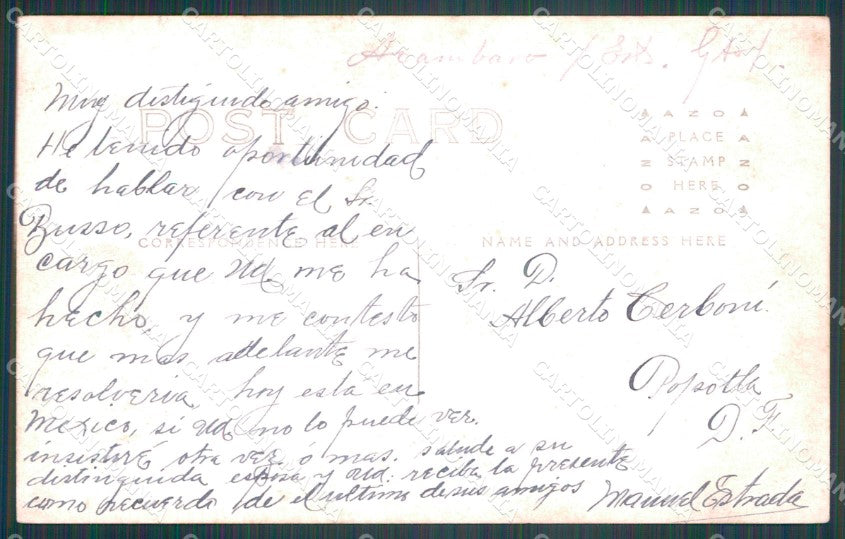 Acambaro, / Est. Gto
Muy distiguido amigo.
POST CARD
He tenido oportunidad
de hablar con el Sr.
Busso, referente al en
CORRESPONDENCE HERE
cargo que Ud. me ha
hecho, y me contesto
que mas adelante me
resolveria, hoy esta en
Mexico, si Ud. no lo puede ver.
insistiré otra ver ó mas. salude a su
distinguida esposa y Ud. reciba la presente
como recuerdo de el ultimo de sus amigos
Manuel Estrada
AZOA
PLACE
STAMP
HERE
AZOA
NAME AND ADDRESS HERE
Sr. D.
Alberto Cerboni.
Popotla
D. F.
CARTOLINOMANIA